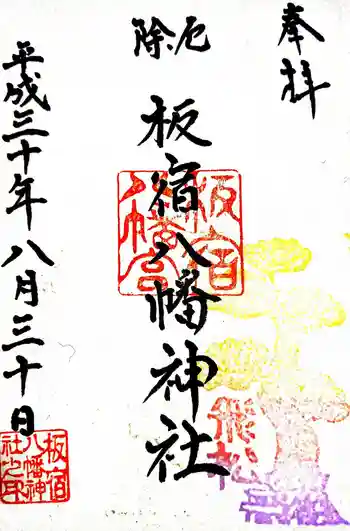 奉拝
厄除
板宿八幡神社
板宿八幡宮
飛松
平成三十年八月三十日
板宿八幡神社之印